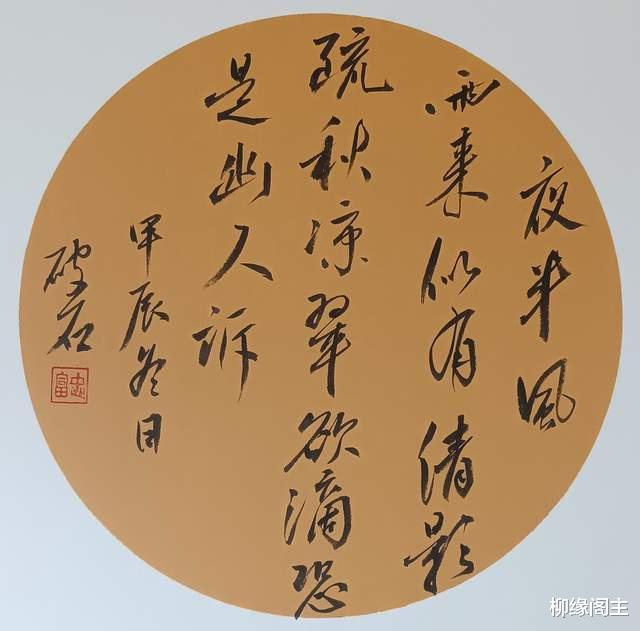 夜半風
雨来似有倩影
疏秋凉翠欲滴恐
是幽人訴
甲辰冬月
破石
忠富
柳缘阁主